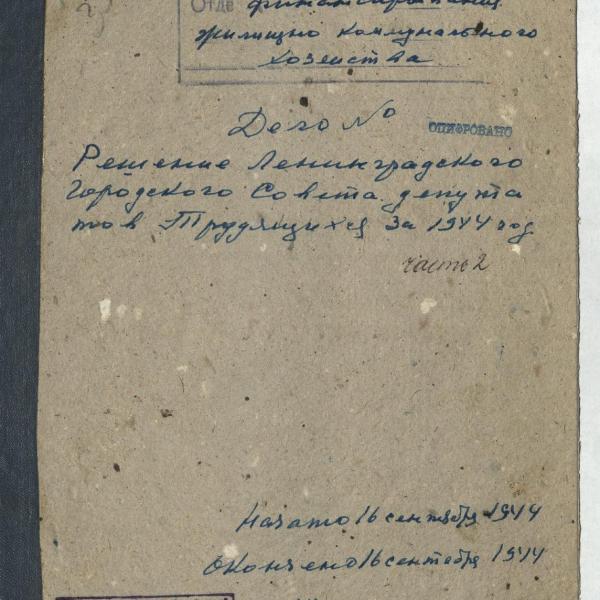 2)
Отде финансирования
жилищно коммунального
хозяйства
Дело №
ОПИФРОВАНО
Решение Ленинградского
Городского Совета депута
тов Трудящихся за 1944 год
часть 2
Начато 16 сентября 1944
Окончено 16 сентября 1944